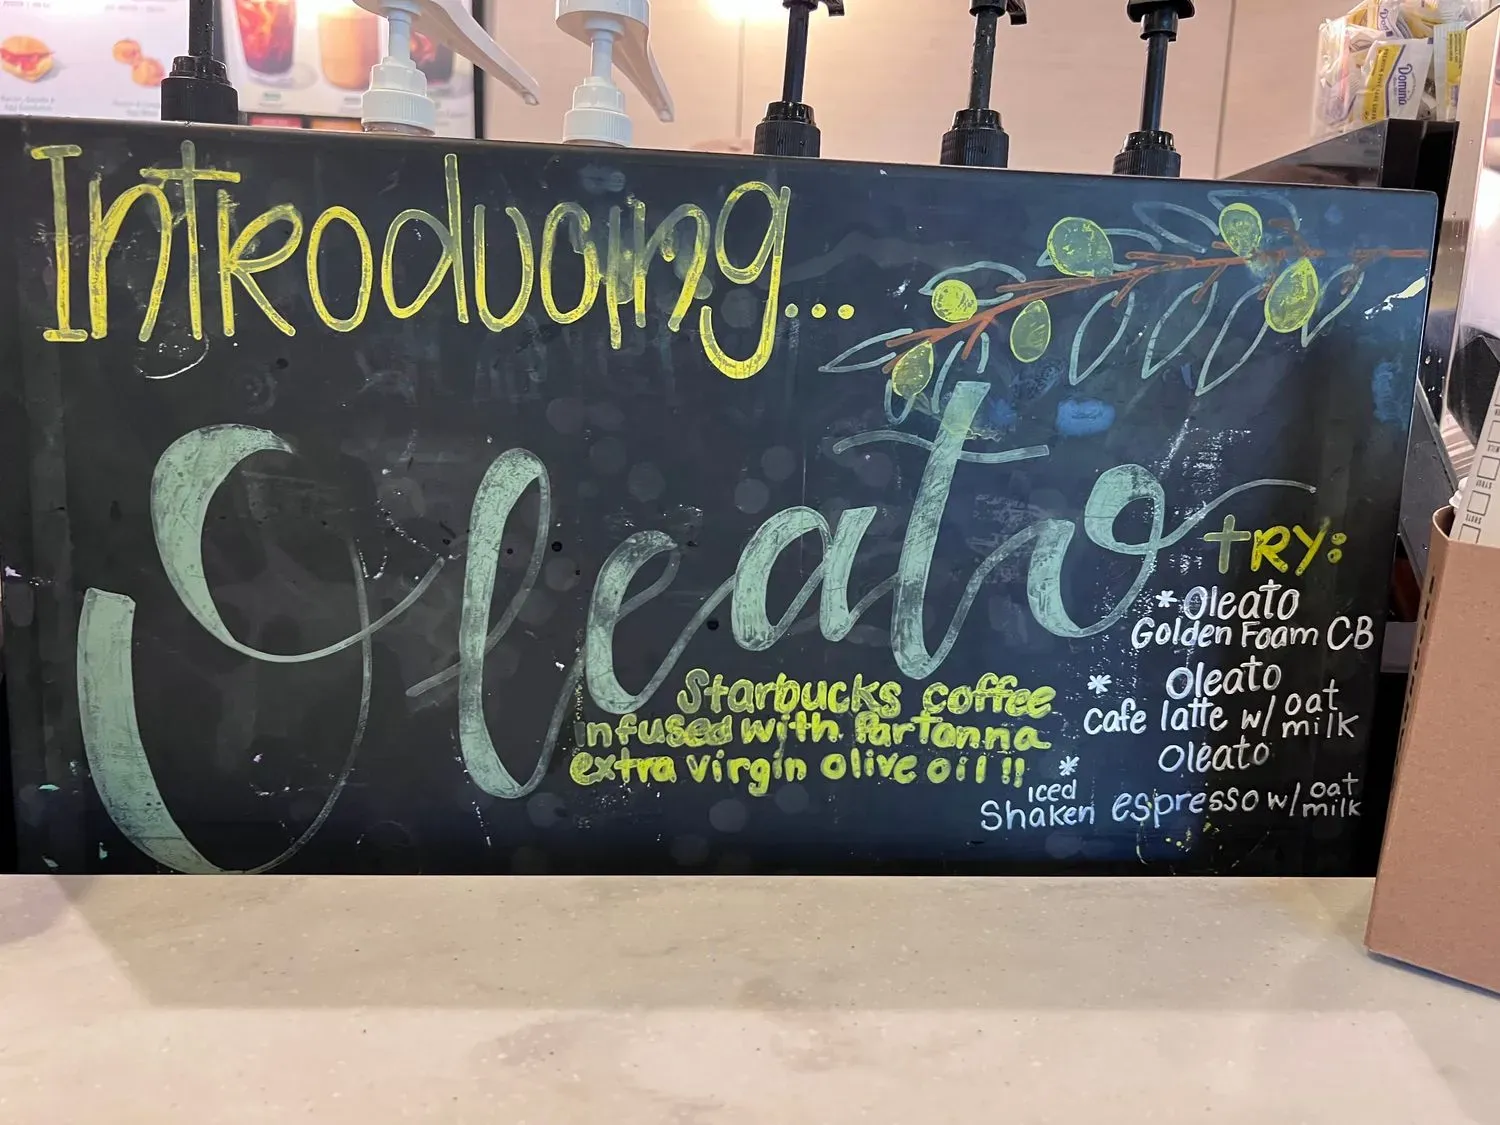 Introducing...
Oleato
Starbucks coffee
infused with Partanna
extra virgin olive oil !!
TRY:
* Oleato
Golden Foam CB
* Oleato
Cafe latte w/ oat milk
* Oleato
iced
Shaken espresso w/ oat milk
Domino